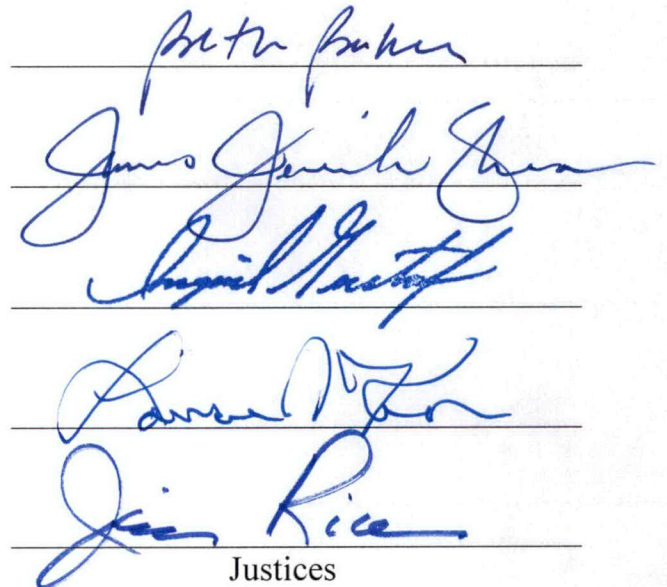 Beth Baker
James Jeremiah Shea
Ingrid Gustafson
Laurie McKinnon
Jim Rice
Justices